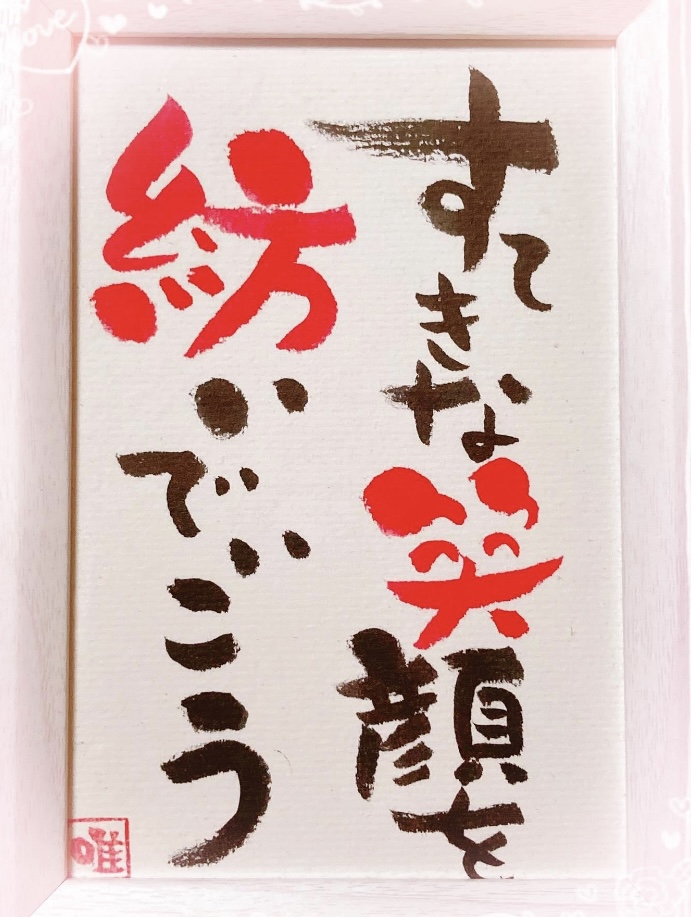 すてきな笑顔を
紡いでいこう
唯
love